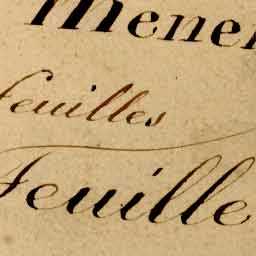 menei
feuilles
Feuille